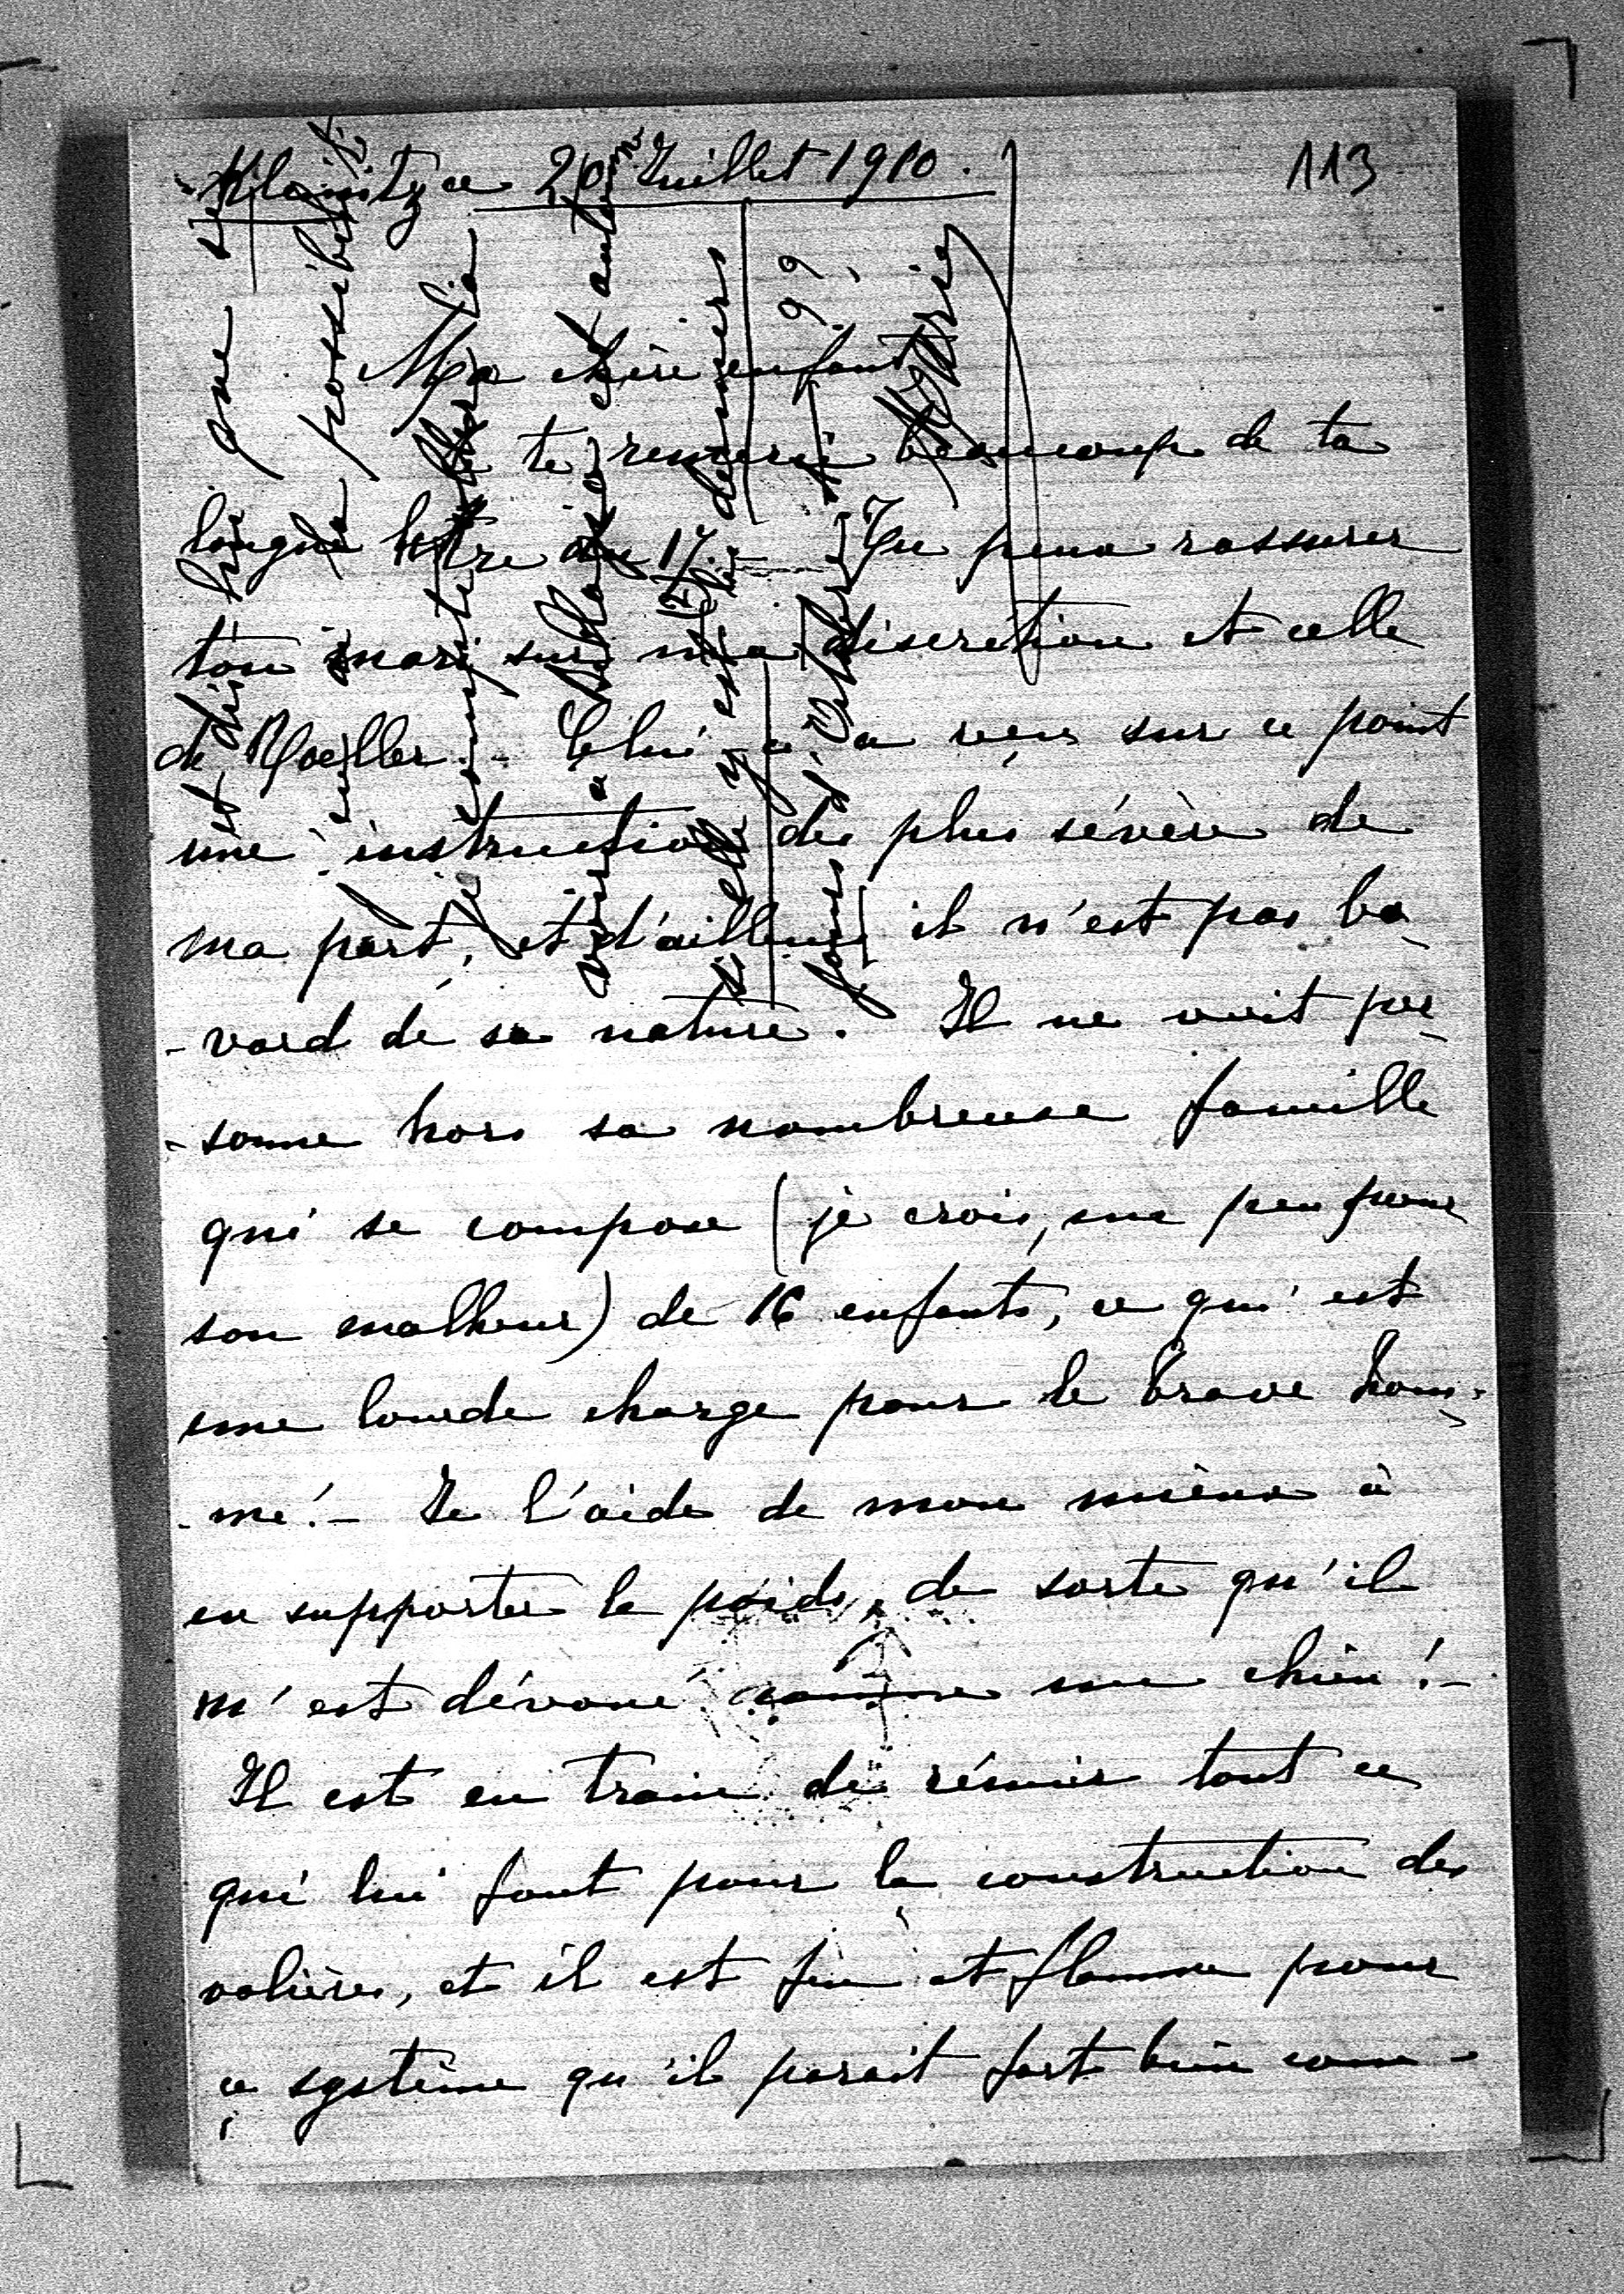 113
ce 20 Juillet 1910.
Ma chère enfant
te remercie beaucoup de ta
longue lettre du 17. – Tu peux rassurer
ton mari sur ma discrétion et celle
de . – Celui-ci a reçu sur ce point
une instruction des plus sévère de
ma part, et d'ailleurs il n'est pas ba-
-vard de sa nature. Il ne voit per-
-sonne hors sa nombreuse famille
qui se compose (je crois, un peu pour
son malheur) de 16 enfants, ce qui est
une lourde charge pour le brave hom-
-me! – Je l'aide de mon mieux à
en supporter le poids, de sorte qu'il
m'est dévoué comme un chien! –
Il est en train de réunir tout ce
qui lui faut pour la construction des
volières, et il est feu et flamme pour
ce système qu'il parait fort bien com-
et dis lui que
possibilité
Je
voir à et automne
si elle y est derniers
jours d'Octobre